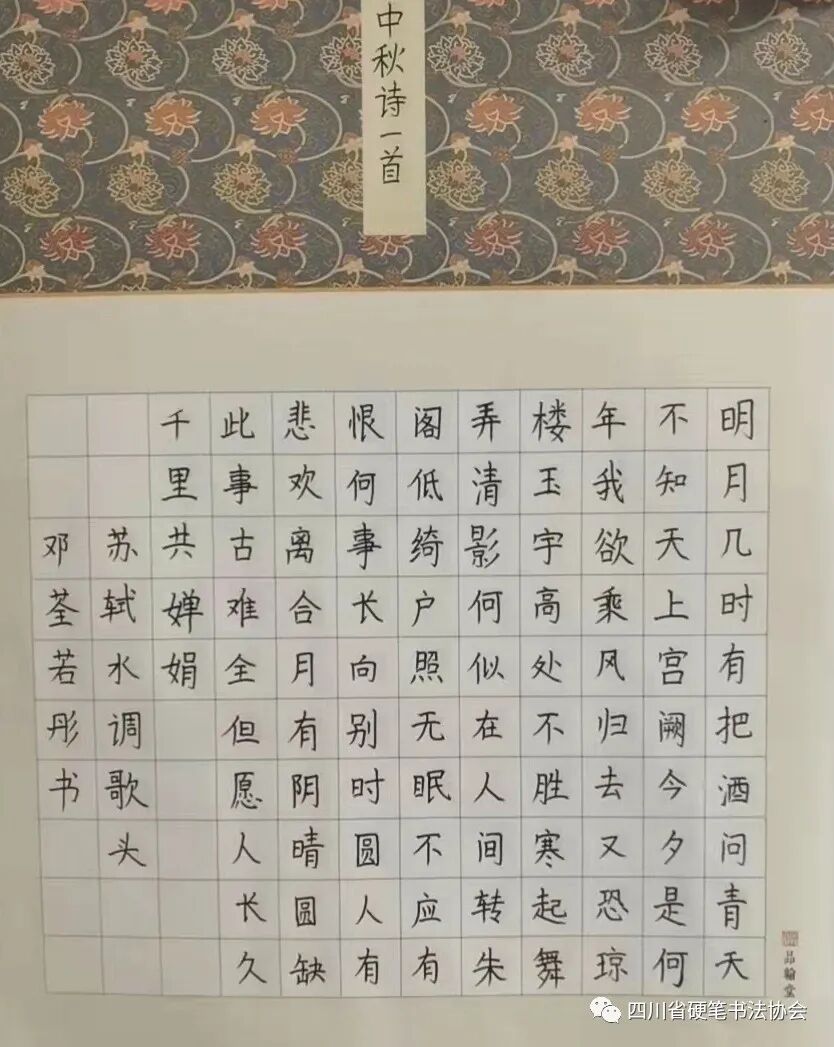 中秋诗一首
明月几时有把酒问青天
不知天上宫阙今夕是何
年我欲乘风归去又恐琼
楼玉宇高处不胜寒起舞
弄清影何似在人间转朱
阁低绮户照无眠不应有
恨何事长向别时圆人有
悲欢离合月有阴晴圆缺
此事古难全但愿人长久
千里共婵娟
苏轼水调歌头
邓荃若彤书
品翰堂
四川省硬笔书法协会